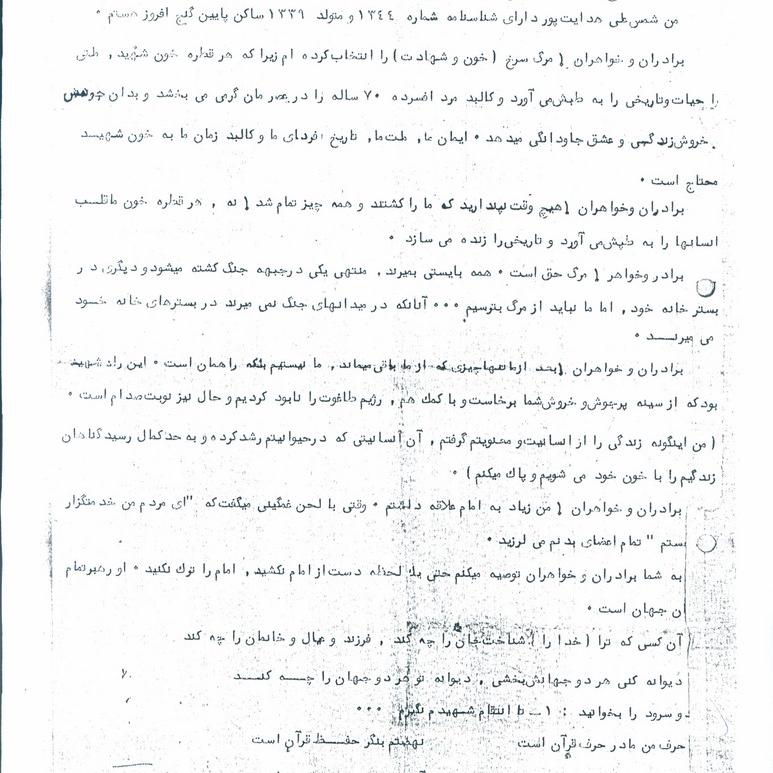 من شمس علی هدایت پور دارای شناسنامه شماره ١٣٤٤ و متولد ١٣٣٩ ساکن پایین گنج افروز هستم ٠
برادران و خواهران ! مرگ سرخ (خون و شهادت) را انتخاب کرده ام زیرا که هر قطره خون شهید , ملتی
را حیات و تاریخی را به طپش می آورد و کالبد مرد افسرده ٧٠ ساله را در عصر مان گرمی می بخشد و بدان جوهش
خروش زندگی و عشق جاودانگی میدهد ٠ ایمان ما, ملت ما, تاریخ فردای ما و کالبد زمان ما به خون شهید
محتاج است ٠
برادران وخواهران ! هیچ وقت نپندارید که ما را کشتند و همه چیز تمام شد ! نه , هر قطره خون ما قلب
انسانها را به طپش می آورد و تاریخی را زنده می سازد ٠
برادر وخواهر ! مرگ حق است ٠ همه بایستی بمیرند , منتهی یکی در جبهه جنگ کشته میشود و دیگری در
بستر خانه خود , اما ما نباید از مرگ بترسیم ٠٠٠ آنانکه در میدانهای جنگ نمی میرند در بسترهای خانه خود
می میرند ٠
برادران و خواهران ! بعد از ما تنها چیزی که از ما باقی میماند , ما نیستیم بلکه راهمان است ٠ این راه شهید
بود که از سینه پرجوش و خروش شما برخاست و با کمک هم , رژیم طاغوت را نابود کردیم و حال نیز نوبت صدام است ٠
(من اینگونه زندگی را از انسانیت و معنویتم گرفتم , آن انسانیتی که در حیوانیتم رشد کرده و به حد کمال رسید گناهان
زندگیم را با خون خود می شویم و پاک میکنم) ٠
برادران و خواهران ! من زیاد به امام علاقه داشتم ٠ وقتی با لحن غمگینی میگفت که "ای مردم من خدمتگزار
ستم " تمام اعضای بدنم می لرزید ٠
به شما برادران و خواهران توصیه میکنم حتی یک لحظه دست از امام نکشید , امام را ترک نکنید ٠ او رهبر تمام
ن جهان است ٠
آن کس که ترا (خدا را) شناخت جان را چه کند , فرزند و عیال و خانمان را چه کند
دیوانه کنی هر دو جهانش بخشی , دیوانه تو هر دو جهان را چه کند
دو سرود را بخوانید : ١ـ تا انتقام شهیدم نگیرم ٠٠٠
حرف من مادر حرف قرآن است نهضتم بنگر حفظ قرآن است